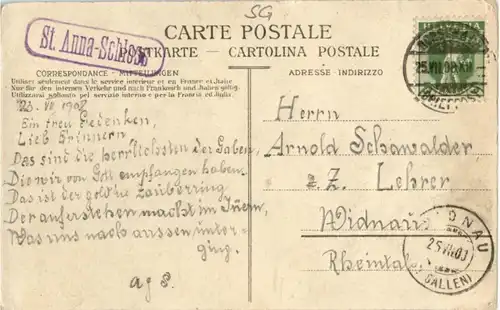 SG
CARTE POSTALE
St. Anna-Schloss
POSTKARTE - CARTOLINA POSTALE
CORRESPONDANCE - MITTEILUNGEN
ADRESSE-INDIRIZZO
Utilizer seulement dans le service intérieur et en France et Italie
Nur für den internen Verkehr und nach Frankreich und Italien gültig.
Utilizzarsi soltanto pel servizio interno e per la Francia ed Italia.
25.VII.08.
23. VII 1908
Ein treu Gedenken,
Lieb Erinnern
Das sind die herrlichsten der Gaben,
Die wir von Gott empfangen haben.
Das ist der goldne Zauberring
Der auferstehen macht im Innern,
Was uns nach aussen unter-
ging.
Herrn
Arnold Schawalder
z. Z. Lehrer
Widnau
Rheintal
WIDNAU
25.VII.08
(ST. GALLEN)